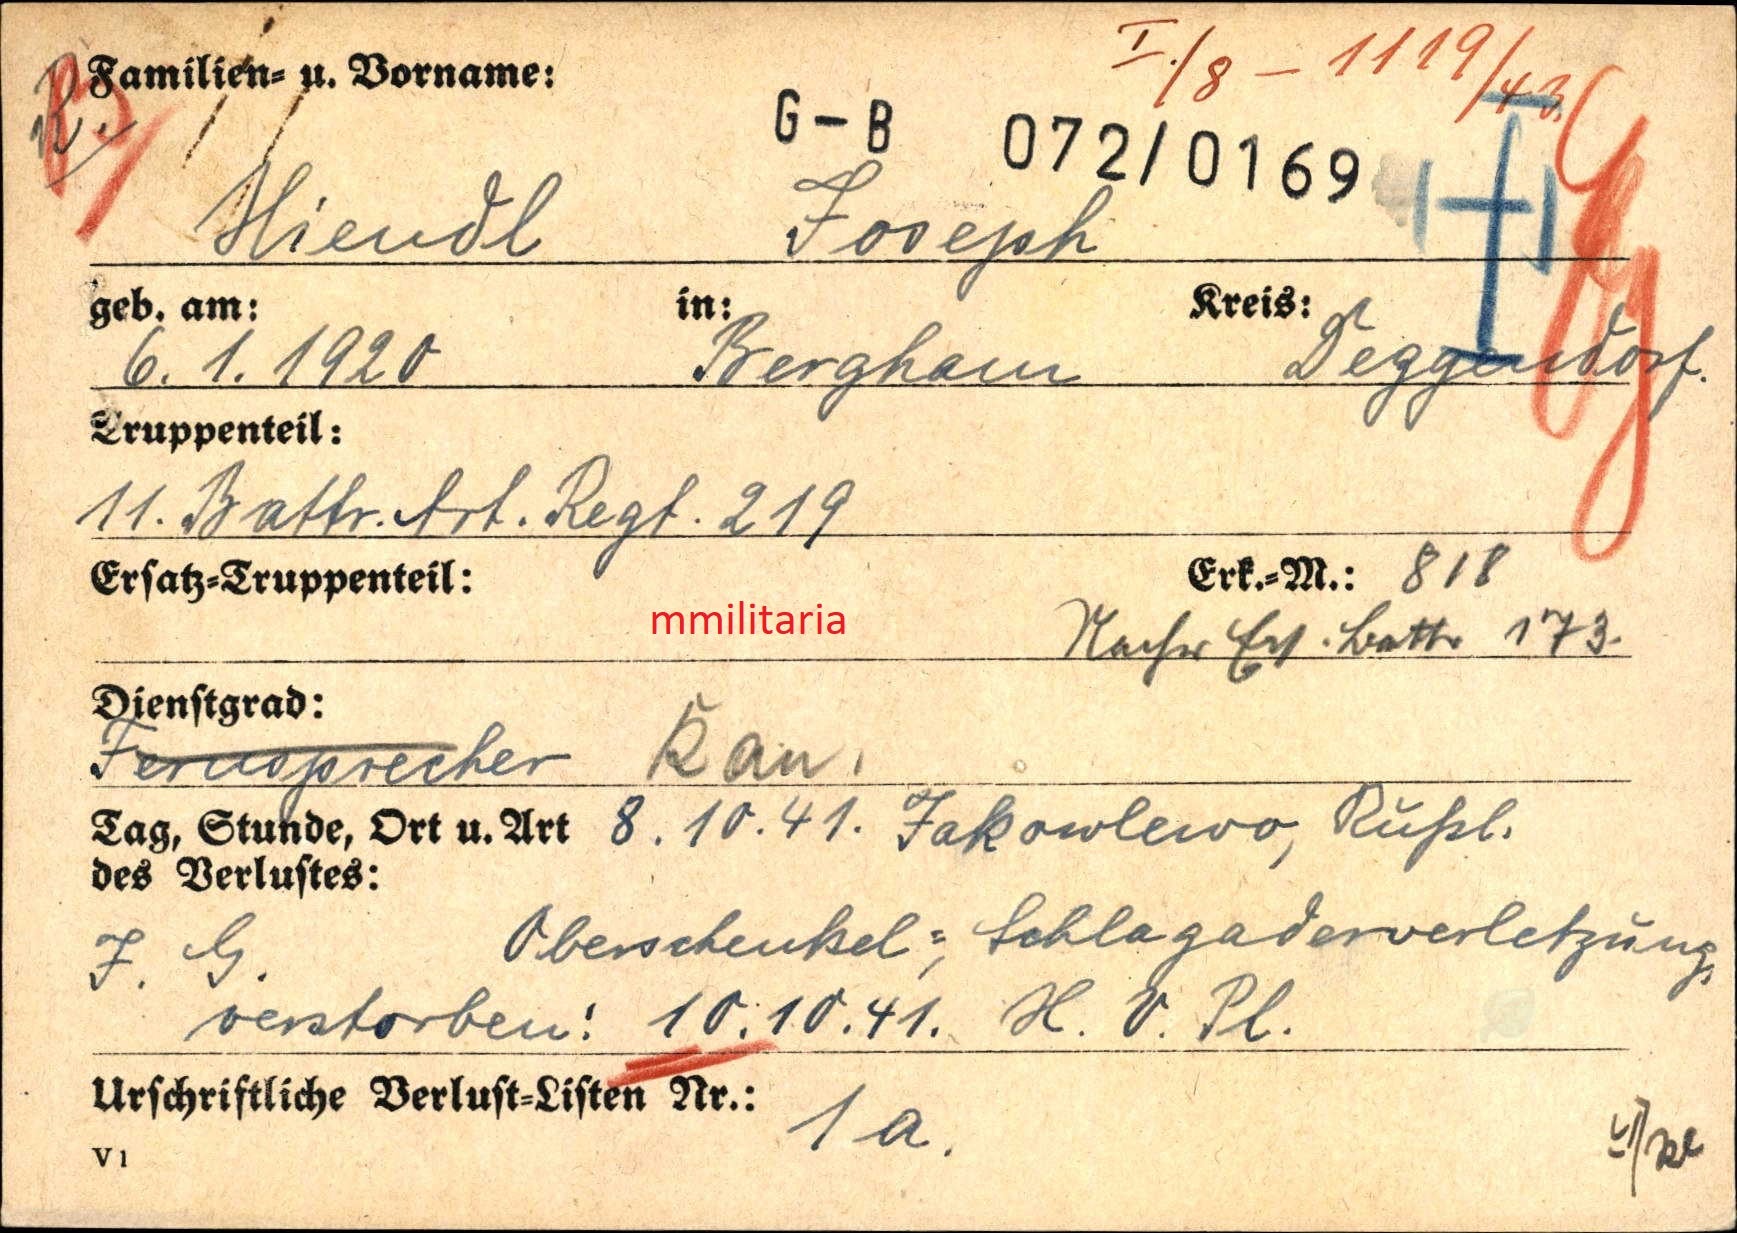 I./8 - 1119/43.
R.
Familien- u. Vorname:
G-B 072/0169
Hiendl Joseph
geb. am: in: Kreis:
6. 1. 1920 Bergham Deggendorf.
Truppenteil:
11. Battr. Art. Regt. 219
Ersatz-Truppenteil: Erk.-M.: 818
mmilitaria
Ers. Battr 173.
Dienstgrad:
Fernsprecher Kan.
Tag, Stunde, Ort u. Art 8. 10. 41. Jakowlewo, Rußl.
des Verlustes:
J. G. Oberschenkel-, Schlagaderverletzung,
verstorben: 10. 10. 41. H. V. Pl.
Urschriftliche Verlust-Listen Nr.: 1 a.
V 1